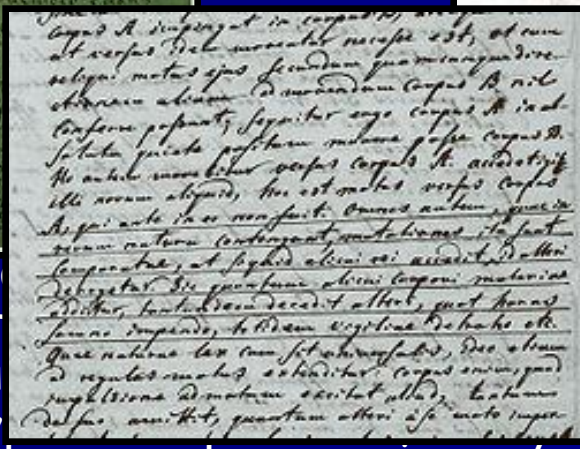 corpus A impingat in corpus B,
ut versus idem moveatur necesse est, et cum
reliqui motus ejus secundum quamcunque dire-
ctionem aliam ad movendum corpus B nil
conferre possunt; sequitur ergo corpus A in ab-
soluta quiete positum movere posse corpus B.
Hoc autem movetur versus corpus A. accedit igitur
illi novum aliquid, hoc est motus versus corpus
A, qui ante in eo non fuit. Omnes autem, quae in
rerum natura contingunt, mutationes ita sunt
comparatae, ut si quid alicui rei accedit, id alteri
derogetur. Sic quantum alicui corpori materiae
additur, tantundem decedit alteri, quot horas
somno impendo, totidem vigiliae detraho etc.
Quae naturae lex cum sit universalis, ideo etiam
ad regulas motus extenditur: corpus enim, quod
impulsione ad motum excitat aliud, tantum
de suo amittit, quantum alteri a se moto imper